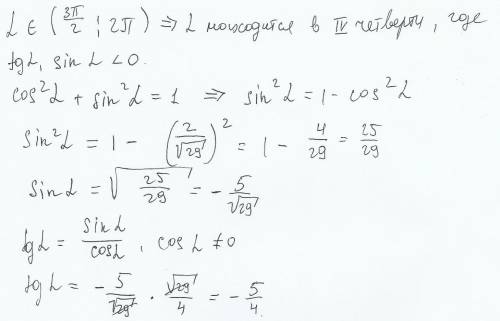 α ∈ (3π/2 ; 2π) ⇒ α находится в IV четверти, где
tgα, sinα < 0.
cos²α + sin²α = 1 ⇒ sin²α = 1 - cos²α
sin²α = 1 - (2/√29)² = 1 - 4/29 = 25/29
sinα = √(25/29) = - 5/√29
tgα = sinα/cosα, cosα ≠ 0
tgα = - 5/√29 · √29/4 = - 5/4.